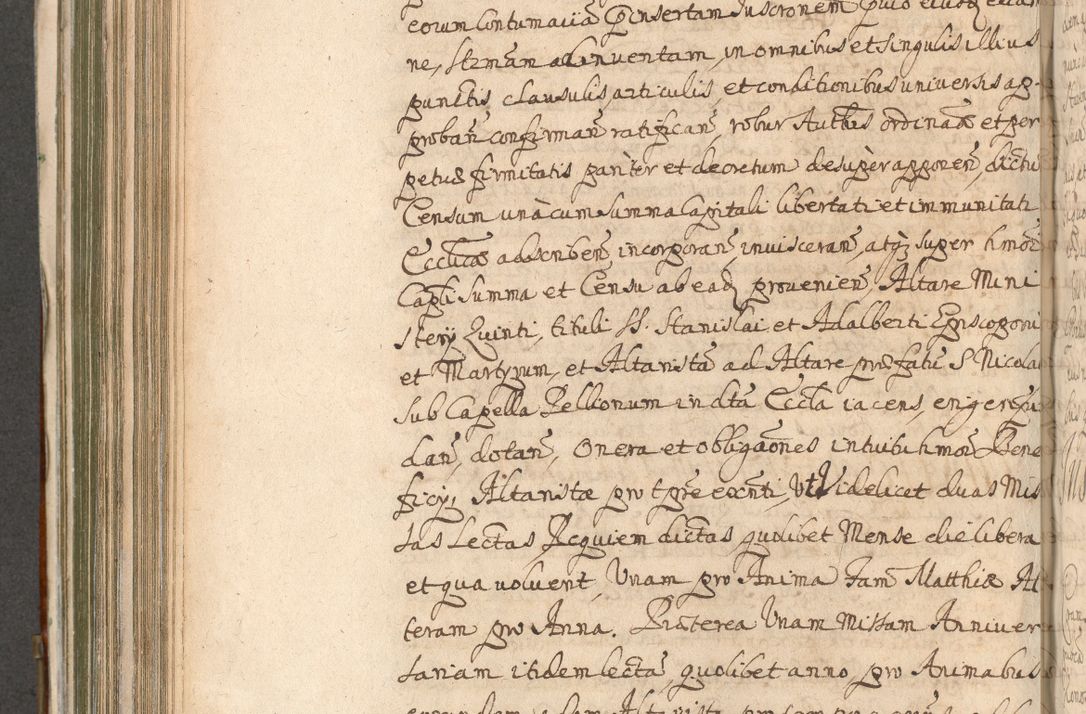 eorum Contumaciã
ne, strmam adinventam, in omnibus et singulis illius
punctis clausulis, articulis et conditionibus universis ap-
proban̄ confirman̄ ratifican̄, robur Aucthis ordinaæ et per
petuæ firmitatis pariter et decretum desuper apponen̄, dictū
Censum unà cum summa Capitali libertati et immunitati
Ecclicæ adscriben̄, incorporan̄, inviscerañ, atqȝ super hmōi
Capli Summa et Censu ab eadȝ provenien̄, Altare Mini
sterÿ Quinti, tituli SS. Stanislai et Adalberti Episcoporū
et Martyrum, et Altaristã ad Altare præfatū S Nicolai
sub Capella Pellionum in dtã Eccla iacens, eriger fū
dan̄, dotan̄, Onera et obligãones intuitu hmōi Bene
ficÿ, Altaristæ pro tpre exnti, Vt Videlicet duas Mis
sas Lectas, Requiem dictas quolibet Mense die libera
et qua voluent, Unam pro Anima Jam Matthiæ Al
teram pro Anna. Præterea Unam Missam Anniver
sariam itidem lectã, quolibet anno, pro Animabus